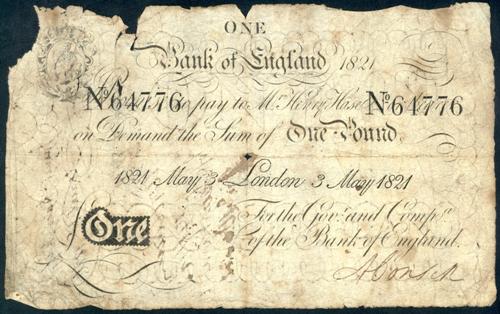 ONE
Bank of England 1821
No 64776 to pay to Mr Henry Hase No 64776
on Demand the Sum of One Pound
1821 May 3 London 3 May 1821
For the Govr and Compa
One of the Bank of England.